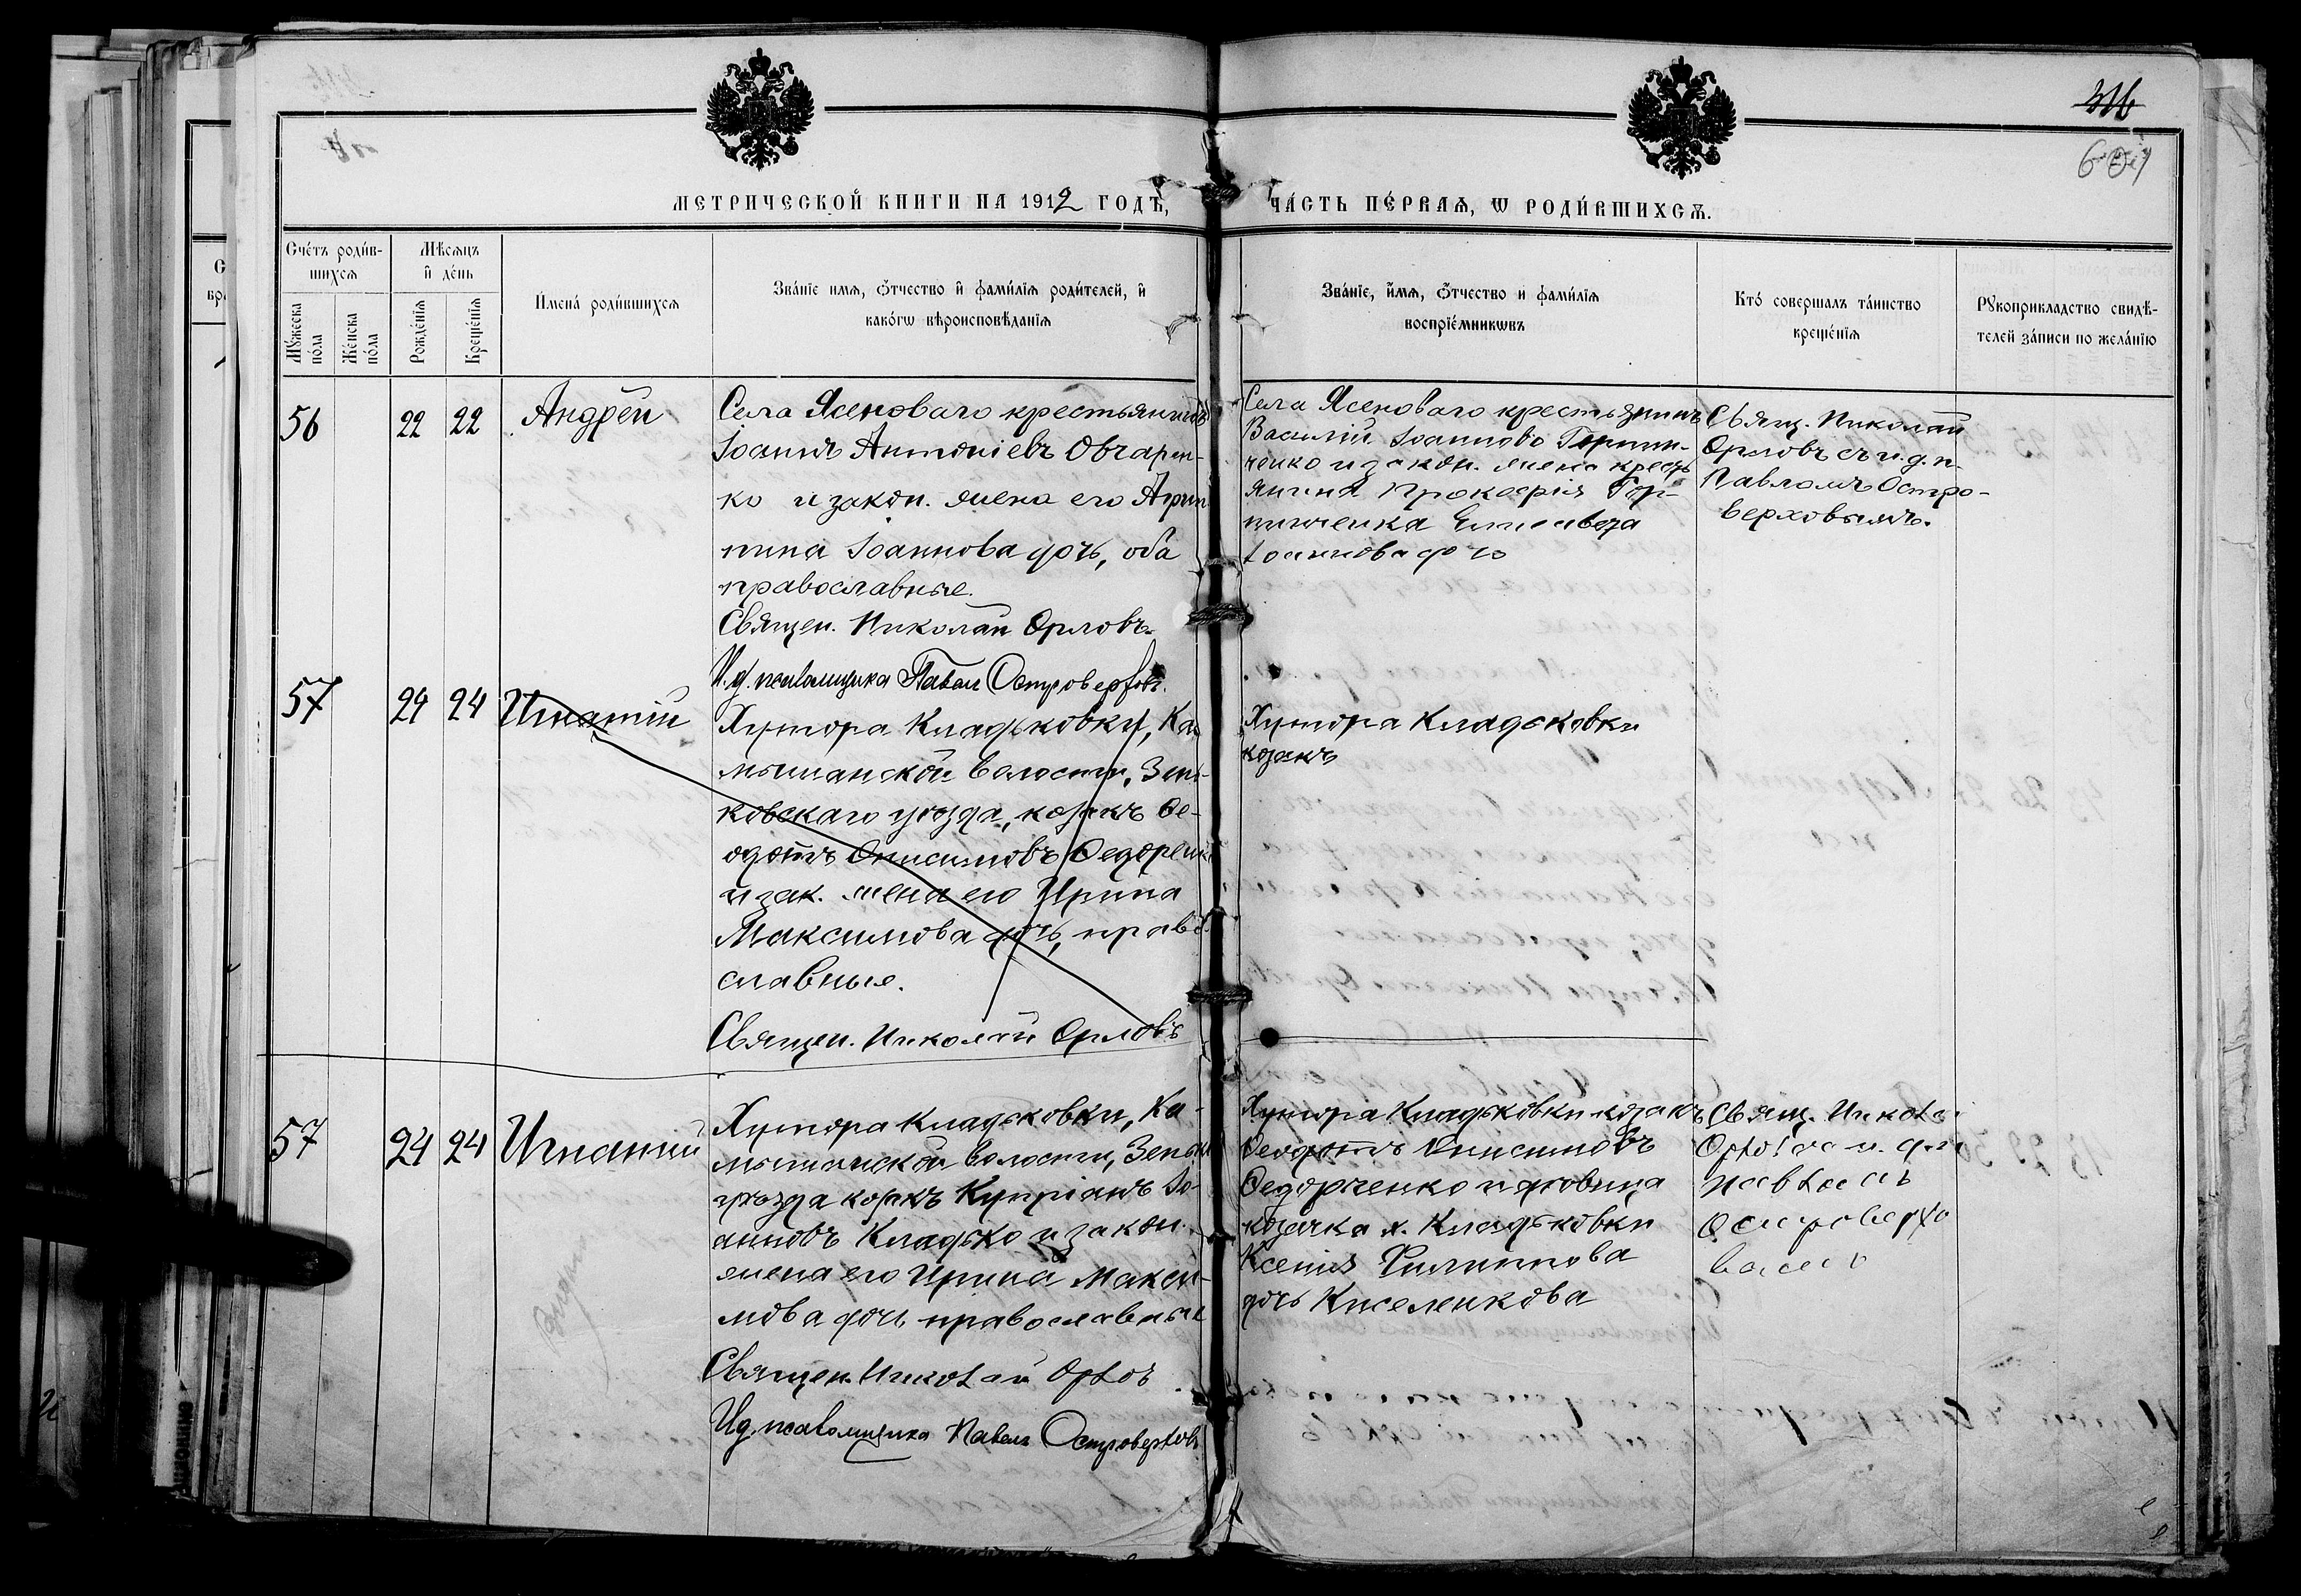 316
601
МЕТРИЧЕСКОЙ КНИГИ НА 1912 ГОДЪ,
ЧАСТЬ ПЕРВАЯ, Ѡ РОДИВШИХСЯ.
Счётъ родив-
шихся
Мѣсяцъ
и день
Мужеска
пола
Женска
пола
Рожденія
Крещенія
Имена родившихся
Званіе имя, ѻтчество и фамилія родителей, и
какогѡ вѣроисповѣданія
Званіе, имя, ѻтчество и фамилія
воспріемникѡвъ
Кто совершалъ таинство
крещенія
Рукоприкладство свидѣ-
телей записи по желанію
56
22
22
Андрей
Села Ясеноваго крестьянинъ
Іоаннъ Антоніевъ Овчарен-
ко и закон. жена его Агрип
пина Іоаннова дочь, оба
православные.
Священ. Николай Орловъ.
И. д. псаломщика Павелъ Островерховъ.
Села Ясеноваго крестьянинъ
Василій Іоанновъ
и закон. жена кресть
янина Прокофія Гор-
пинченка Елисавета
Іоаннова дочь
Свящ. Николай
Орловъ съ и. д. п.
Павломъ Остро-
верховымъ.
57
24
24
Игнатій
Хутора Кладьковки, Ка-
мышанской волости, Зень-
ковскаго уѣзда, козакъ Ѳе-
одотъ Онисимовъ Ѳедорченко
и зак. жена его Ирина
Максимова дочь, право-
славные.
Священ. Николай Орловъ
Хутора Кладьковки
козакъ
57
24
24
Игнатій
Хутора Кладьковки, Ка-
мышанской волости, Зеньк.
уѣзда козакъ Купріанъ Іо-
анновъ Кладько и закон.
жена его Ирина Макси-
мова дочь православные
Священ. Николай Орловъ
И. д. псаломщика Павелъ Островерховъ
Хутора Кладьковки козакъ
Ѳеодотъ Онисимовъ
Ѳедорченко и вдовица
козачка х. Кладьковки
Ксенія Филиппова
дочь Киселенкова
Свящ. Николай
Орловъ съ и. д. п.
Павломъ
Островерхо
вымъ